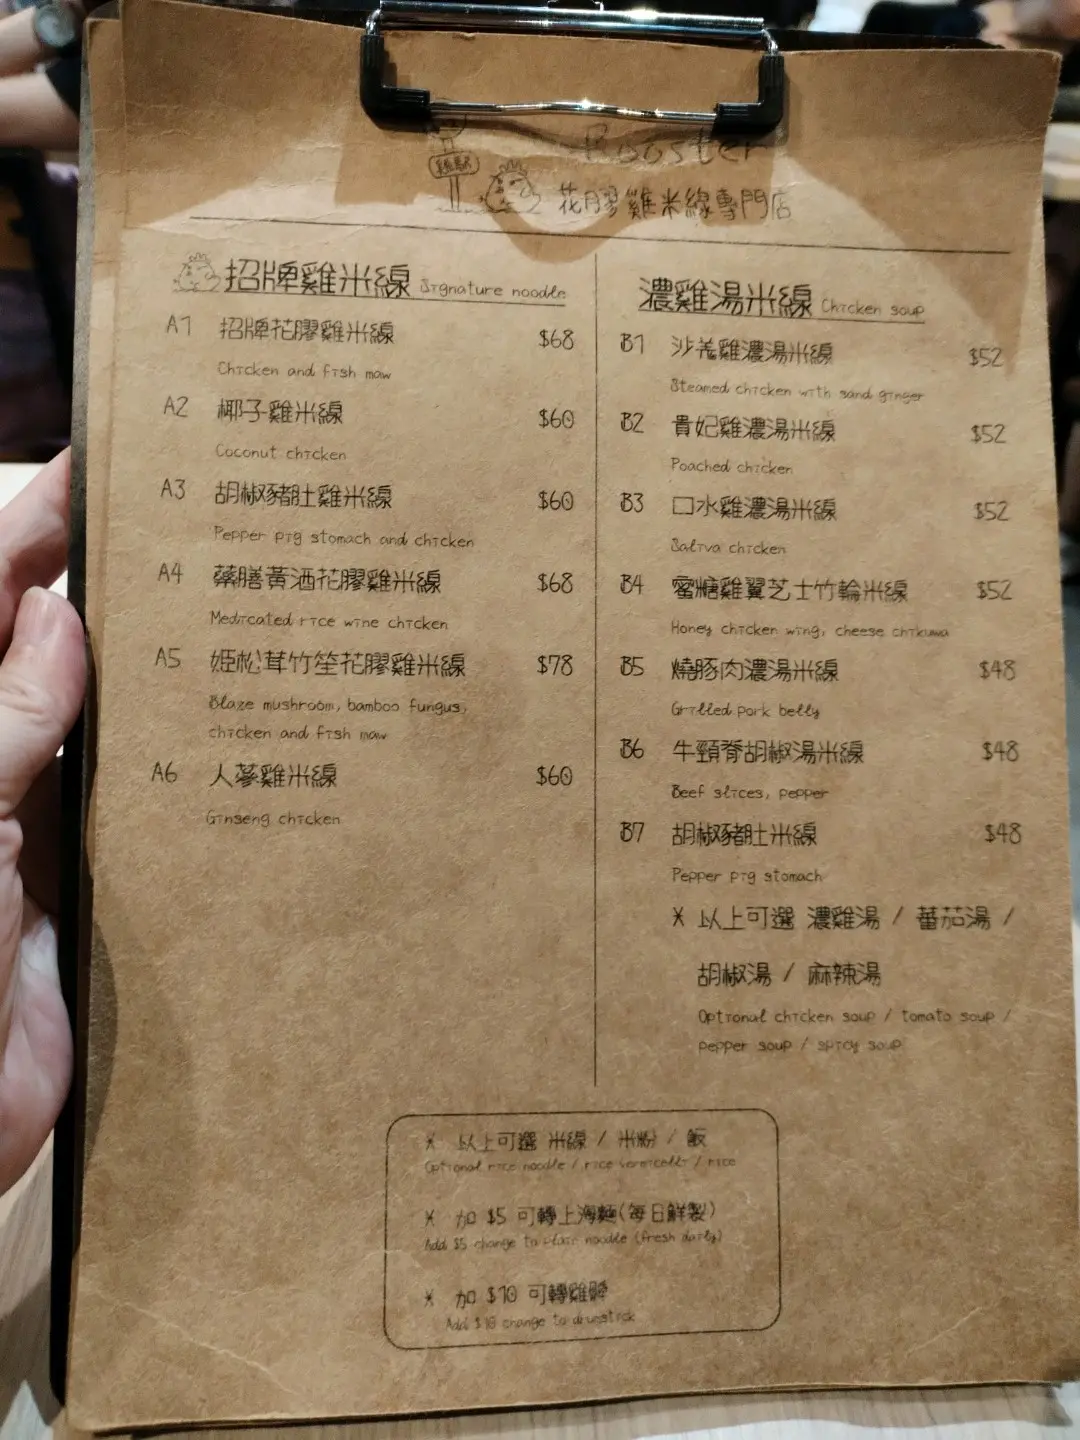 Rooster
花膠雞米線專門店
招牌雞米線 Signature noodle
A1 招牌花膠雞米線 $68
Chicken and fish maw
A2 椰子雞米線 $60
Coconut chicken
A3 胡椒豬肚雞米線 $60
Pepper pig stomach and chicken
A4 藥膳黃酒花膠雞米線 $68
Medicated rice wine chicken
A5 姬松茸竹笙花膠雞米線 $78
Blaze mushroom, bamboo fungus,
chicken and fish maw
A6 人蔘雞米線 $60
Ginseng chicken
濃雞湯米線 Chicken soup
B1 沙羗雞濃湯米線 $52
Steamed chicken with sand ginger
B2 貴妃雞濃湯米線 $52
Poached chicken
B3 口水雞濃湯米線 $52
Saliva chicken
B4 蜜糖雞翼芝士竹輪米線 $52
Honey chicken wing, cheese chikuwa
B5 燒豚肉濃湯米線 $48
Grilled pork belly
B6 牛頸脊胡椒湯米線 $48
Beef slices, pepper
B7 胡椒豬肚米線 $48
Pepper pig stomach
* 以上可選 濃雞湯 / 蕃茄湯 /
胡椒湯 / 麻辣湯
Optional chicken soup / tomato soup /
pepper soup / spicy soup
* 以上可選 米線 / 米粉 / 飯
Optional rice noodle / rice vermicelli / rice
* 加 $5 可轉上海麵(每日鮮製)
Add $5 change to plain noodle (fresh daily)
* 加 $10 可轉雞髀
Add $10 change to drumstick